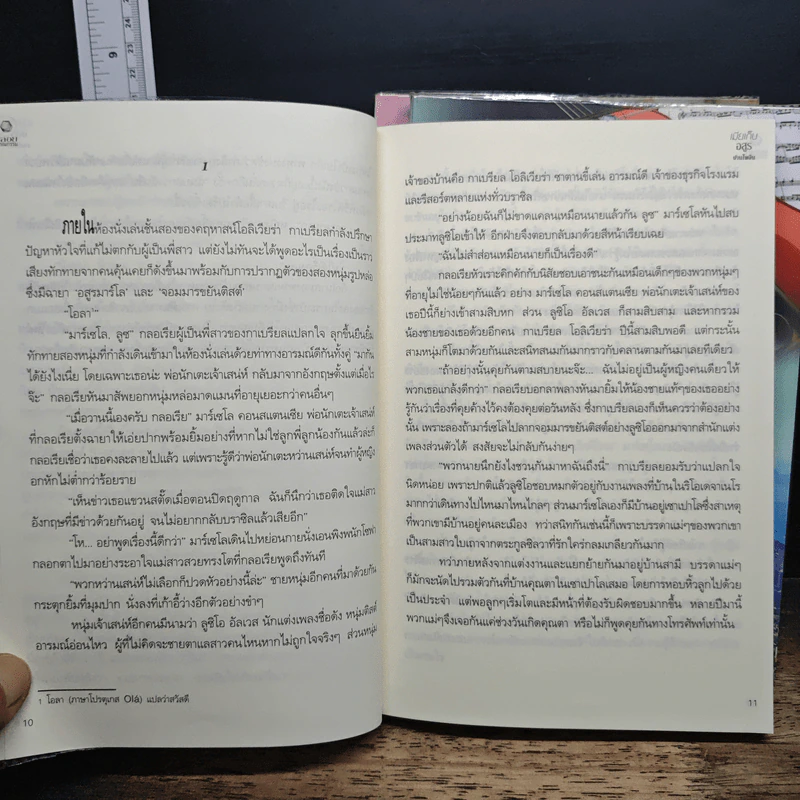 1
ภายในห้องนั่งเล่นชั้นสองของคฤหาสน์โอลิเวียร่า กาเบรียลกำลังปรึกษา
ปัญหาหัวใจที่แก้ไม่ตกกับผู้เป็นพี่สาว แต่ยังไม่ทันได้พูดอะไรเป็นเรื่องเป็นราว
เสียงทักทายจากคนคุ้นเคยก็ดังขึ้นมาพร้อมกับการปรากฏตัวของสองหนุ่มรูปหล่อ
ซึ่งมีฉายา ‘อสูรมาร์โล’ และ ‘จอมมารขยันติสต์’
“โอลา¹”
“มาร์เซโล. ลูซ” กลอเรียผู้เป็นพี่สาวของกาเบรียลแปลกใจ ลุกขึ้นยืนยิ้ม
ทักทายสองหนุ่มที่กำลังเดินเข้ามาในห้องนั่งเล่นด้วยท่าทางอารมณ์ดีกันทั้งคู่ “มากัน
ได้ยังไงเนี่ย โดยเฉพาะเธอน่ะ พ่อนักเตะเจ้าเสน่ห์ กลับมาจากอังกฤษตั้งแต่เมื่อไร
จ๊ะ” กลอเรียหันมาสัพยอกหนุ่มหล่อมาดแมนที่อายุเยอะกว่าคนอื่นๆ
“เมื่อวานนี้เองครับ กลอเรีย” มาร์เซโล คอนสแตนเซีย พ่อนักเตะเจ้าเสน่ห์
ที่กลอเรียตั้งฉายาให้เอ่ยปากพร้อมยิ้มอย่างที่หากไม่ใช่ลูกพี่ลูกน้องกันแล้วล่ะก็
กลอเรียเชื่อว่าเธอคงละลายไปแล้ว แต่เพราะรู้ดีว่าพ่อนักเตะหว่านเสน่ห์จนทำผู้หญิง
อกหักไม่ต่ำกว่าร้อยราย
“เห็นข่าวเธอแขวนสตั๊ดเมื่อตอนปิดฤดูกาล ฉันก็นึกว่าเธอติดใจแม่สาว
อังกฤษที่มีข่าวด้วยกันอยู่ จนไม่อยากกลับบราซิลแล้วเสียอีก”
“โห... อย่าพูดเรื่องนี้ดีกว่า” มาร์เซโลเดินไปหย่อนกายนั่งเอนพิงพนักโซฟา
กลอกตาไปมาอย่างระอาใจแม่สาวสวยทรงโตที่กลอเรียพูดถึงทันที
“พวกหว่านเสน่ห์ไม่เลือกก็ปวดหัวอย่างนี้ล่ะ” ชายหนุ่มอีกคนที่มาด้วยกัน
กระตุกยิ้มที่มุมปาก นั่งลงที่เก้าอี้ว่างอีกตัวอย่างช้าๆ
หนุ่มเจ้าเสน่ห์อีกคนมีนามว่า ลูซิโอ อัลเวส นักแต่งเพลงชื่อดัง หนุ่มติสต์
อารมณ์อ่อนไหว ผู้ที่ไม่คิดจะชายตาแลสาวคนไหนหากไม่ถูกใจจริงๆ ส่วนหนุ่ม
1 โอลา (ภาษาโปรตุเกส Olá) แปลว่าสวัสดี
10
เมียเก็บ
อสูร
เจ้าของบ้านคือ กาเบรียล โอลิเวียร่า ซาตานขี้เล่น อารมณ์ดี เจ้าของธุรกิจโรงแรม
และรีสอร์ตหลายแห่งทั่วบราซิล
“อย่างน้อยฉันก็ไม่ขาดแคลนเหมือนนายแล้วกัน ลูซ” มาร์เซโลหันไปสบ
ประมาทลูซิโอเข้าให้ อีกฝ่ายจึงตอบกลับมาด้วยสีหน้าเรียบเฉย
“ฉันไม่สำส่อนเหมือนนายก็เป็นเรื่องดี”
กลอเรียหัวเราะคิกคักกับนิสัยชอบเอาชนะกันเหมือนเด็กๆของพวกหนุ่มๆ
ที่อายุไม่ใช่น้อยๆกันแล้ว อย่าง มาร์เซโล คอนสแตนเซีย พ่อนักเตะเจ้าเสน่ห์ของ
เธอปีนี้ก็ย่างเข้าสามสิบหก ส่วน ลูซิโอ อัลเวส ก็สามสิบสาม และหากรวม
น้องชายของเธอด้วยอีกคน กาเบรียล โอลิเวียร่า ปีนี้สามสิบพอดี แต่กระนั้น
สามหนุ่มก็โตมาด้วยกันและสนิทสนมกันมากราวกับคลานตามกันมาเลยทีเดียว
“ถ้าอย่างนั้นคุยกันตามสบายนะจ๊ะ... ฉันไม่อยู่เป็นผู้หญิงคนเดียวให้
พวกเธอแกล้งดีกว่า” กลอเรียบอกลาพลางหันมายิ้มให้น้องชายแท้ๆของเธออย่าง
รู้กันว่าเรื่องที่คุยค้างไว้คงต้องคุยต่อวันหลัง ซึ่งกาเบรียลเองก็เห็นควรว่าต้องอย่าง
นั้น เพราะลองถ้ามาร์เซโลไปลากจอมมารขยันติสต์อย่างลูซิโอออกมาจากสำนักแต่ง
เพลงส่วนตัวได้ สงสัยจะไม่กลับกันง่ายๆ
“พวกนายนึกยังไงชวนกันมาหาฉันถึงนี่” กาเบรียลยอมรับว่าแปลกใจ
นิดหน่อย เพราะปกติแล้วลูซิโอชอบหมกตัวอยู่กับงานเพลงที่บ้านในริโอเดจาเนโร
มากกว่าเดินทางไปไหนมาไหนไกลๆ ส่วนมาร์เซโลเองก็มีบ้านอยู่เซาเปาโลซึ่งสาเหตุ
ที่พวกเขามีบ้านอยู่คนละเมือง ทว่าสนิทกันเช่นนี้ก็เพราะบรรดาแม่ๆของพวกเขา
เป็นสามสาวใบเถาจากตระกูลซิลวาที่รักใคร่กลมเกลียวกันมาก
ทว่าภายหลังจากแต่งงานและแยกย้ายกันมาอยู่บ้านสามี บรรดาแม่ๆ
ก็มักจะนัดไปรวมตัวกันที่บ้านคุณตาในเซาเปาโลเสมอ โดยการหอบหิ้วลูกไปด้วย
เป็นประจำ แต่พอลูกๆเริ่มโตและมีหน้าที่ต้องรับผิดชอบมากขึ้น หลายปีมานี้
พวกแม่ๆจึงเจอกันแค่ช่วงวันเกิดคุณตา หรือไม่ก็พูดคุยกันทางโทรศัพท์เท่านั้น
11